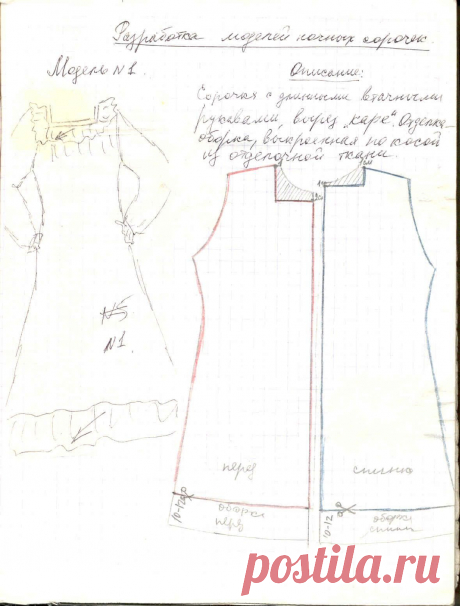 Разработка моделей ночных сорочек.
Модель N1.
Описание:
Сорочка с длинными втачными
рукавами, вырез „каре". Отделка-
оборка, выкроенная по косой
из отделочной ткани.
N1.
перед
спинка
10-12
оборка
перед
10-12
оборка
спинки
postila.ru